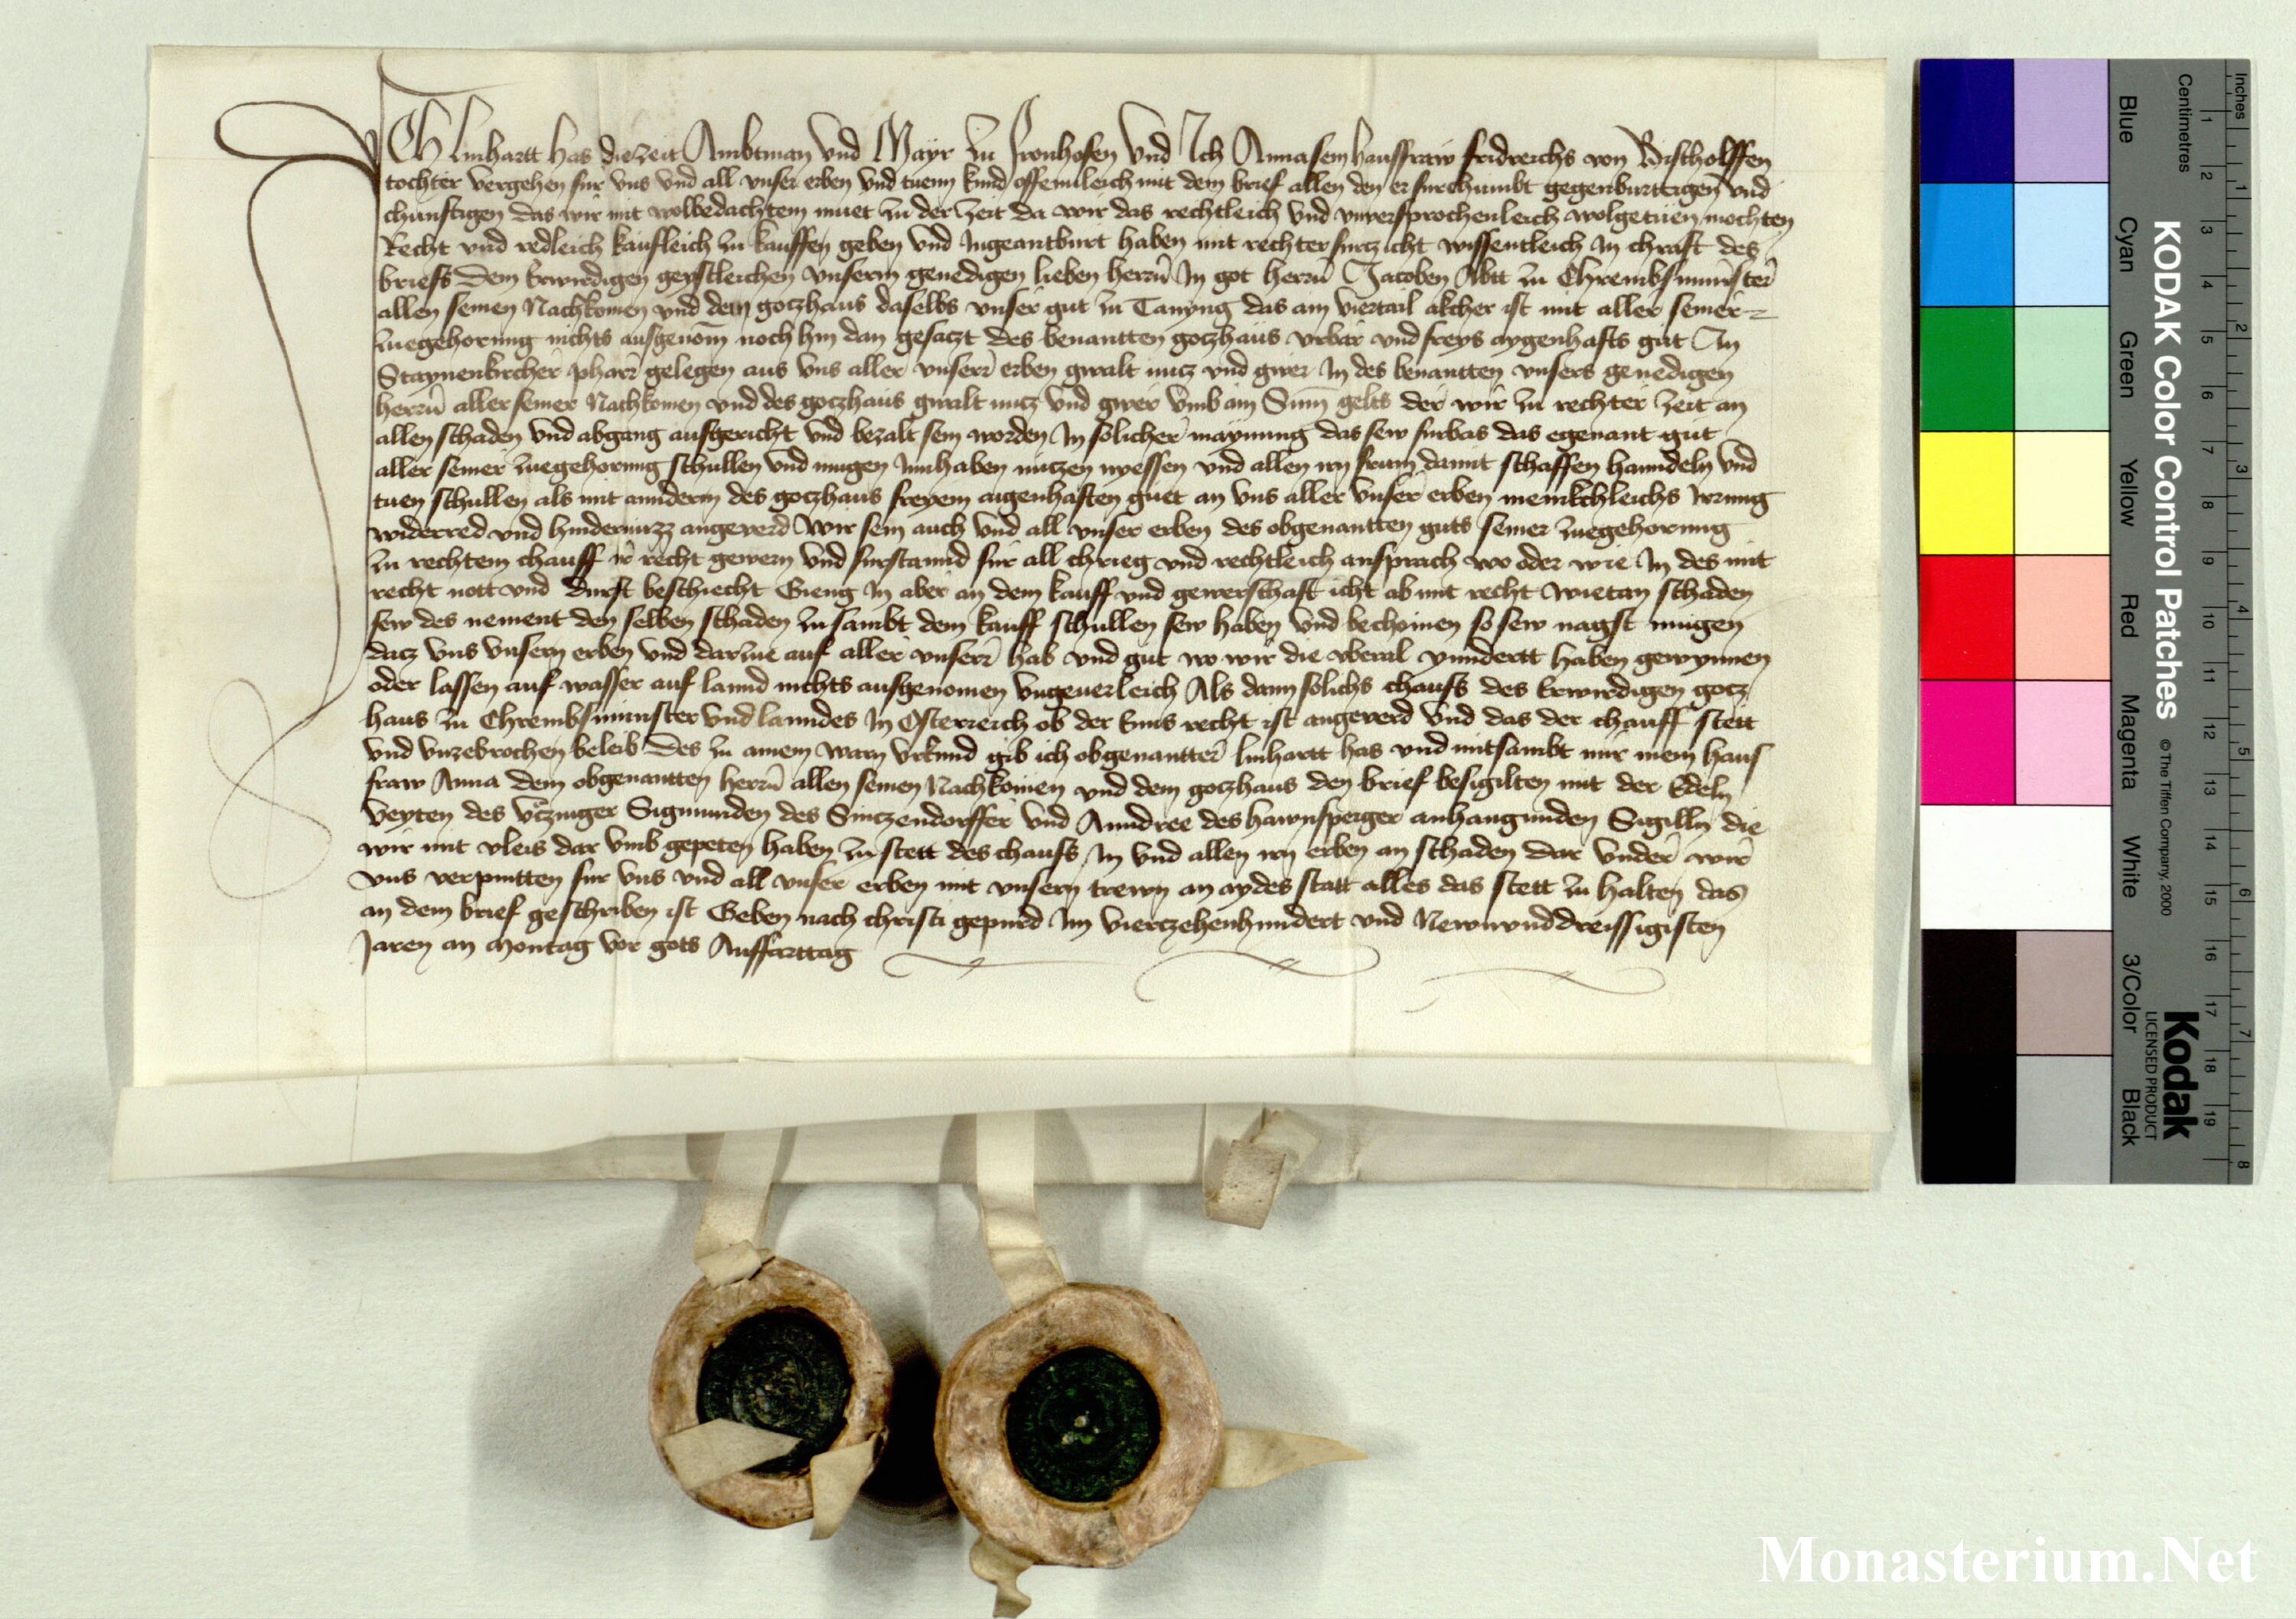 ICH linhartt has diezeit Ambtman vnd Mayr zu Fronhofen vnd Ich Anna sein hausfraw fridreichs von Bischolffen
tochter vergehen fur vns vnd all vnser erben vnd tuenn kund offennleich mit dem brief allen den er furchumbt gegenburttigen vnd
chunftigen das wir mit wolbedachtem muet zu der zeit da wir das rechtleich vnd vnversprochenleich wolgetuen mochten
Recht vnd redleich kaufleich zu kauffen geben vnd Ingeantburt haben mit rechter furtzicht wissentleich In chraft des
briefs Dem Erwirdigen geystleichen vnserm genedigen lieben herrn In got herrn Jacoben Abtt zu Chrembsmunster
allen seinen Nachkomen vnd dem gotzhaus daselbs vnser gut zu Tanyng das ain viertail akcher ist mit aller seiner
zuegehorung nichts ausgenom noch hin dan gesatzt des benantten gotzhaus vrbar vnd freys aygenhafts gut In
Staynenkircher pharr gelegen aus vns aller vnserr erben gwalt nutz vnd gwer In des benantten vnsers genedigen
herrn aller seiner Nachkomen vnd des gotzhaus gwalt nutz vnd gwer vmb ain Sum gelts der wir zu rechter zeit an
allen schaden vnd abgang ausgericht vnd bezalt sein worden In solicher maynung das sew furbas das egenant gut
aller seiner zuegehorung schullen vnd mugen Innhaben nutzen nyessen vnd allen irn frum damit schaffen hanndeln vnd
tuen schullen als mit annderm des gotzhaus freyem aigenhaften guet an vns aller vnser erben menikchleichs Irrung
widerred vnd hindernuzz angeverd Wir sein auch vnd all vnser erben des obgenantten guts seiner zuegehorung
zu rechtem chauff ir recht gewern vnd furstannd fur all chrieg vnd rechtleich ansprach wo oder wie In des mit
recht nott vnd durft beschiecht Gieng In aber an dem kauff vnd gewerschaft icht ab mit recht wietan schaden
sew des nement den selben schaden zu sambt dem kauff schullen sew haben vnd bechomen so sew nagst mugen
datz vns vnsern erben vnd darzue auf aller vnserr hab vnd gut wo wir die vberal ynndertt haben gewynnen
oder lassen auf wasser auf lannd nichts ausgenomen vngeuerleich Als dann solichs chaufs des Erwirdigen gotz
haus zu Chrembsmunster vnd lanndes In Osterreich ob der Enns recht ist angeverd vnd das der chauff stett
vnd vnzebrochen beleib Des zu ainem warn vrkund gib ich obgenantter linhartt has vnd mitsambt mir mein haus
fraw Anna dem obgenantten herrn allen seinen Nachkomen vnd dem gotzhaus den brief besigilten mit der Edeln
Veyten des vtzinger Sigmunden des Sintzendorffer vnd Anndree des hawnsperger anhangunden Sigilln die
wir mit vleis dar vmb gepeten haben zu stett des chaufs In vnd allen irn erben an schaden dar vnder wir
vns verpintten fur vns vnd all vnser erben mit vnsern trewn an aydes statt alles das stett zu halten das
an dem brief geschriben ist Geben nach christi gepurd Im viertzehenhundert vnd Newnvnddreissigisten
Jaren an Montag vor gots Auffarttag
KODAK Color Control Patches © The Tiffen Company, 2000
Kodak
LICENSED PRODUCT
Blue Cyan Green Yellow Red Magenta White 3/Color Black
Inches 1 2 3 4 5 6 7 8
Centimetres 1 2 3 4 5 6 7 8 9 10 11 12 13 14 15 16 17 18 19
Monasterium.Net